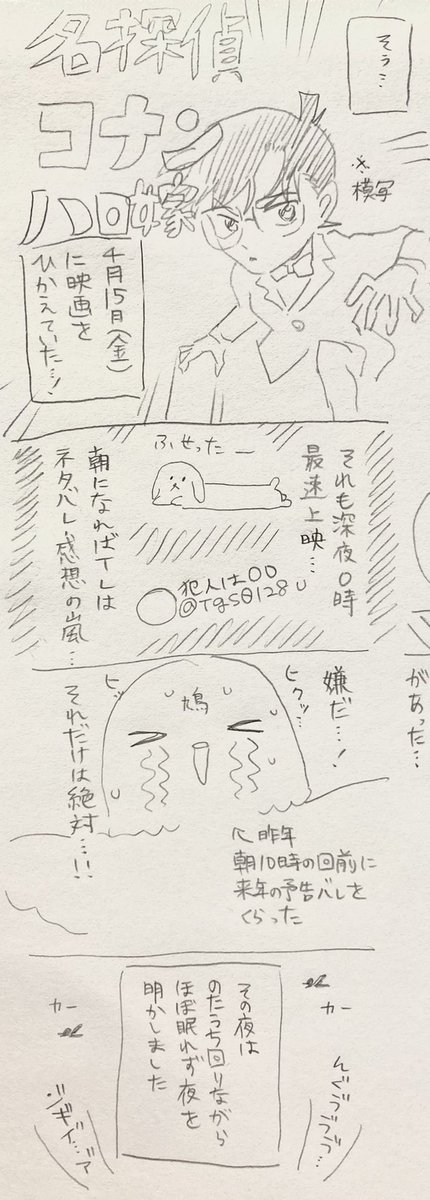 そう…
名探偵
コナン
ハロ嫁
※模写
4月15日(金)
に映画を
ひかえていた…!
それも深夜0時
最速上映…
ふせったー
犯人は〇〇
朝になればTLは
ネタバレ・感想の嵐…
があった…
嫌だ…!
ヒクッ…
ヒッ
鳩
それだけは絶対…!!
昨年
朝10時の回前に
来年の予告バレを
くらった
その夜は
のたうち回りながら
ほぼ眠れず夜を
明かしました
カー
カー
んぐううう…